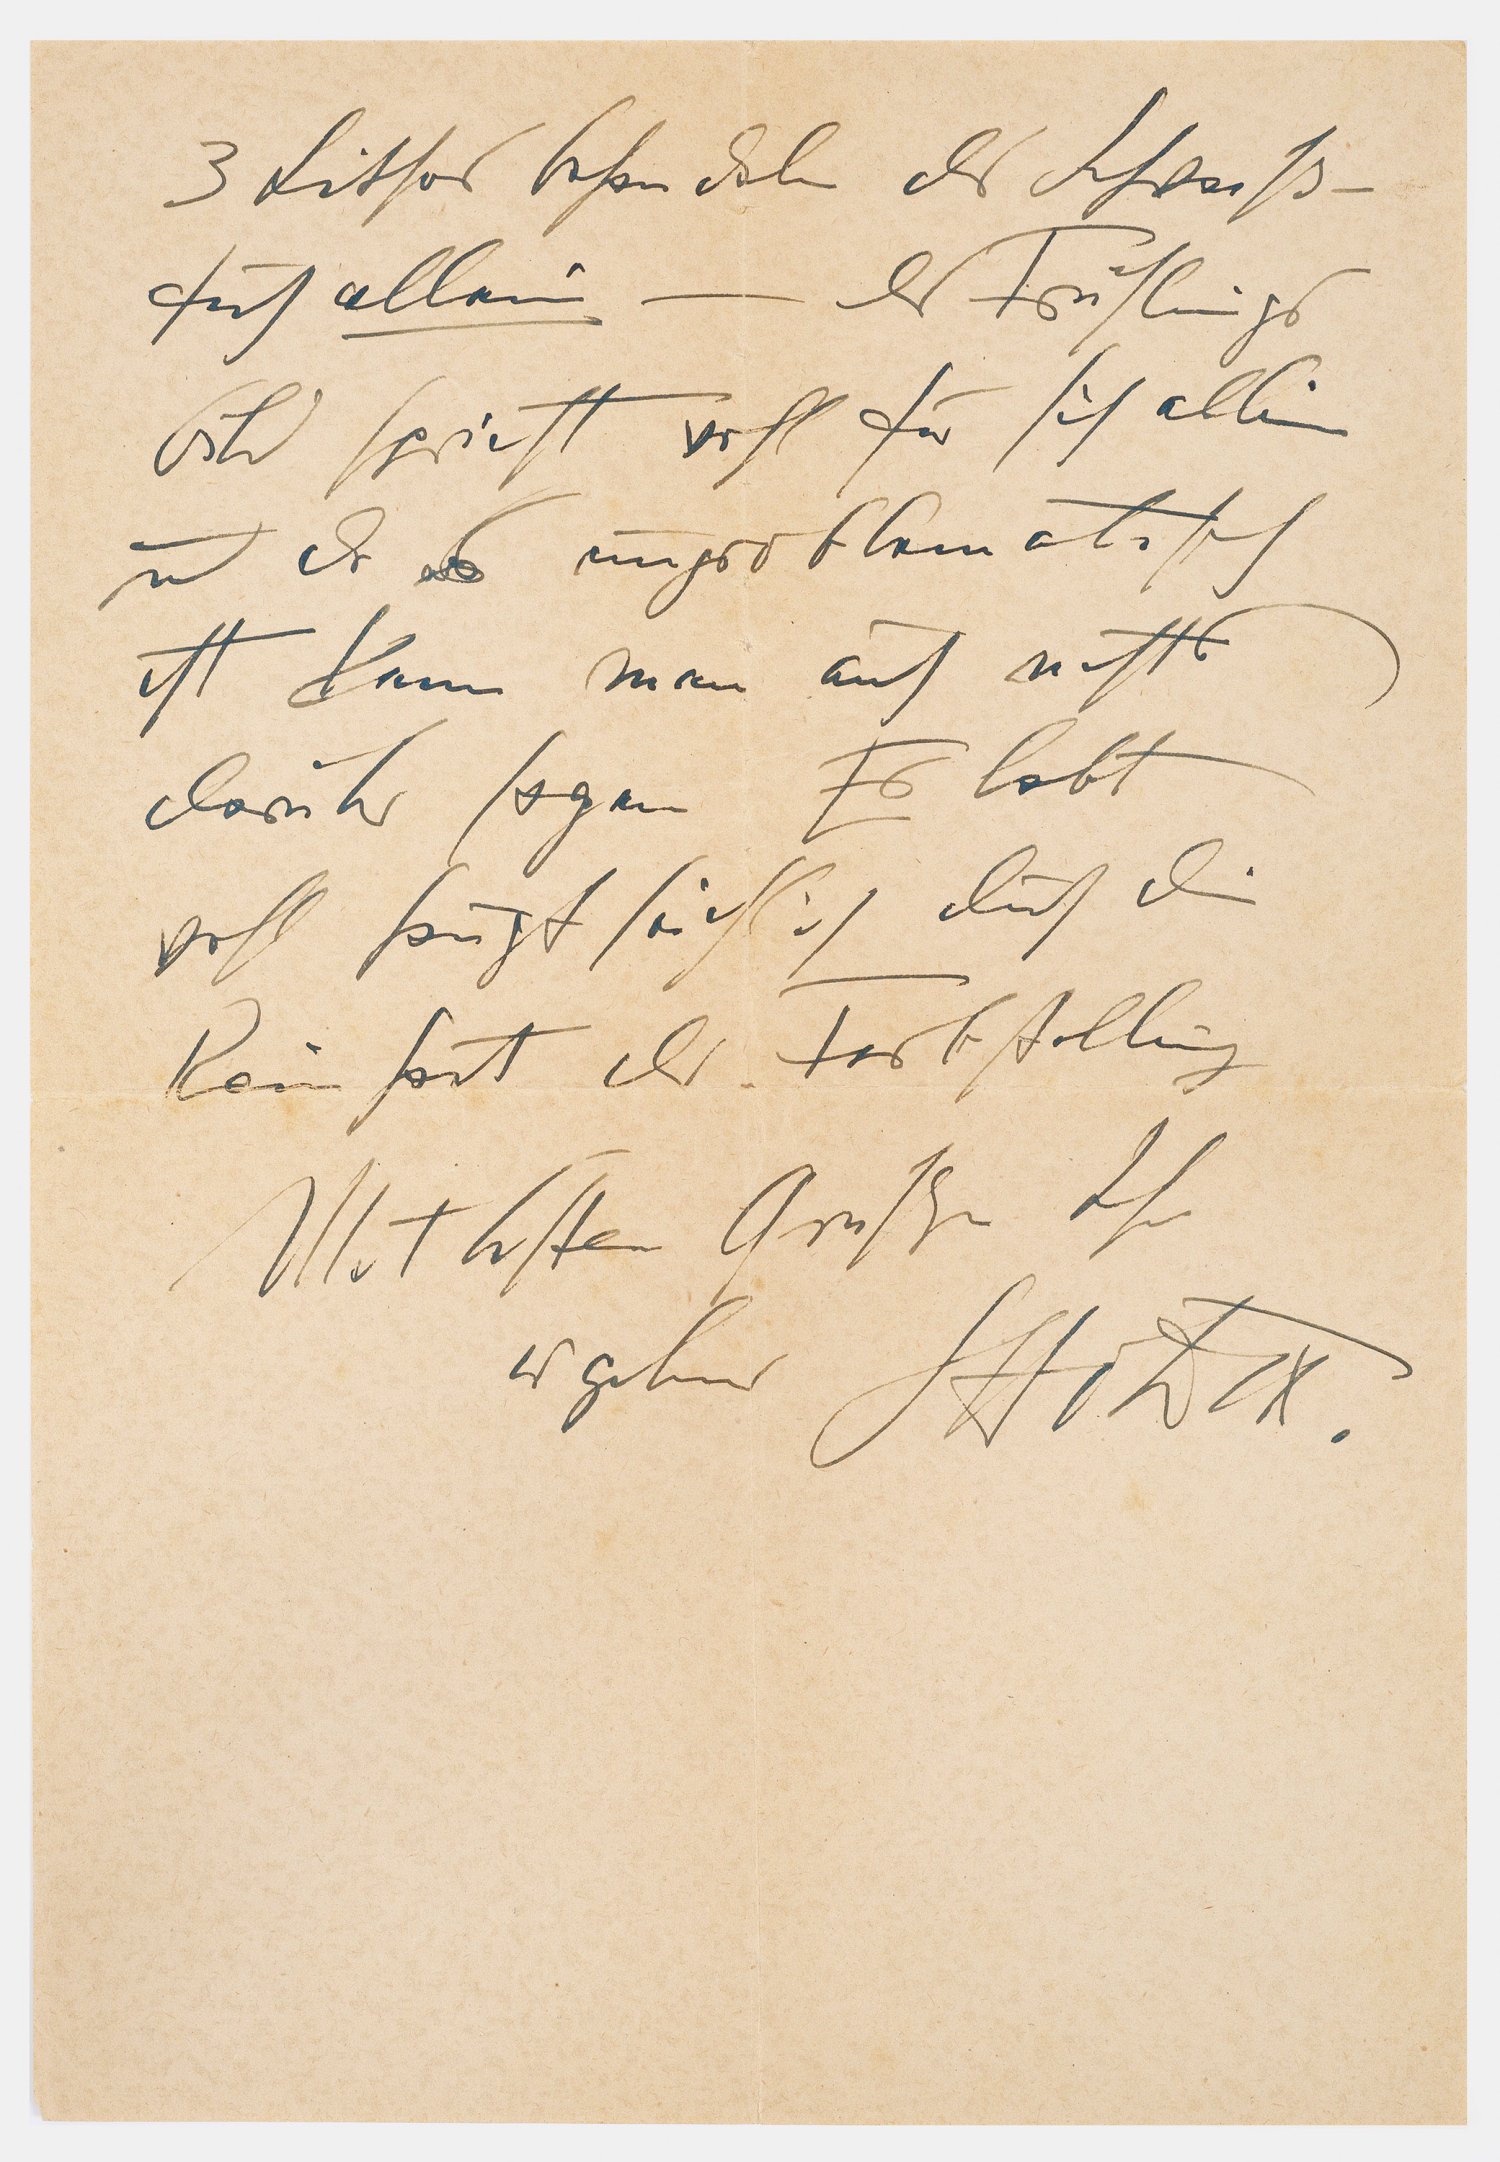 3 Bücher behandeln der Schweiß-
tuch allein — der Frühlings
bild spricht wohl für sich allein
und da es unproblematisch
ist kann man auch nichts
darüber sagen Er lebt
wohl hauptsächlich durch die
Reinheit der Farbstellung
Mit besten Grüßen Ihr
ergebener